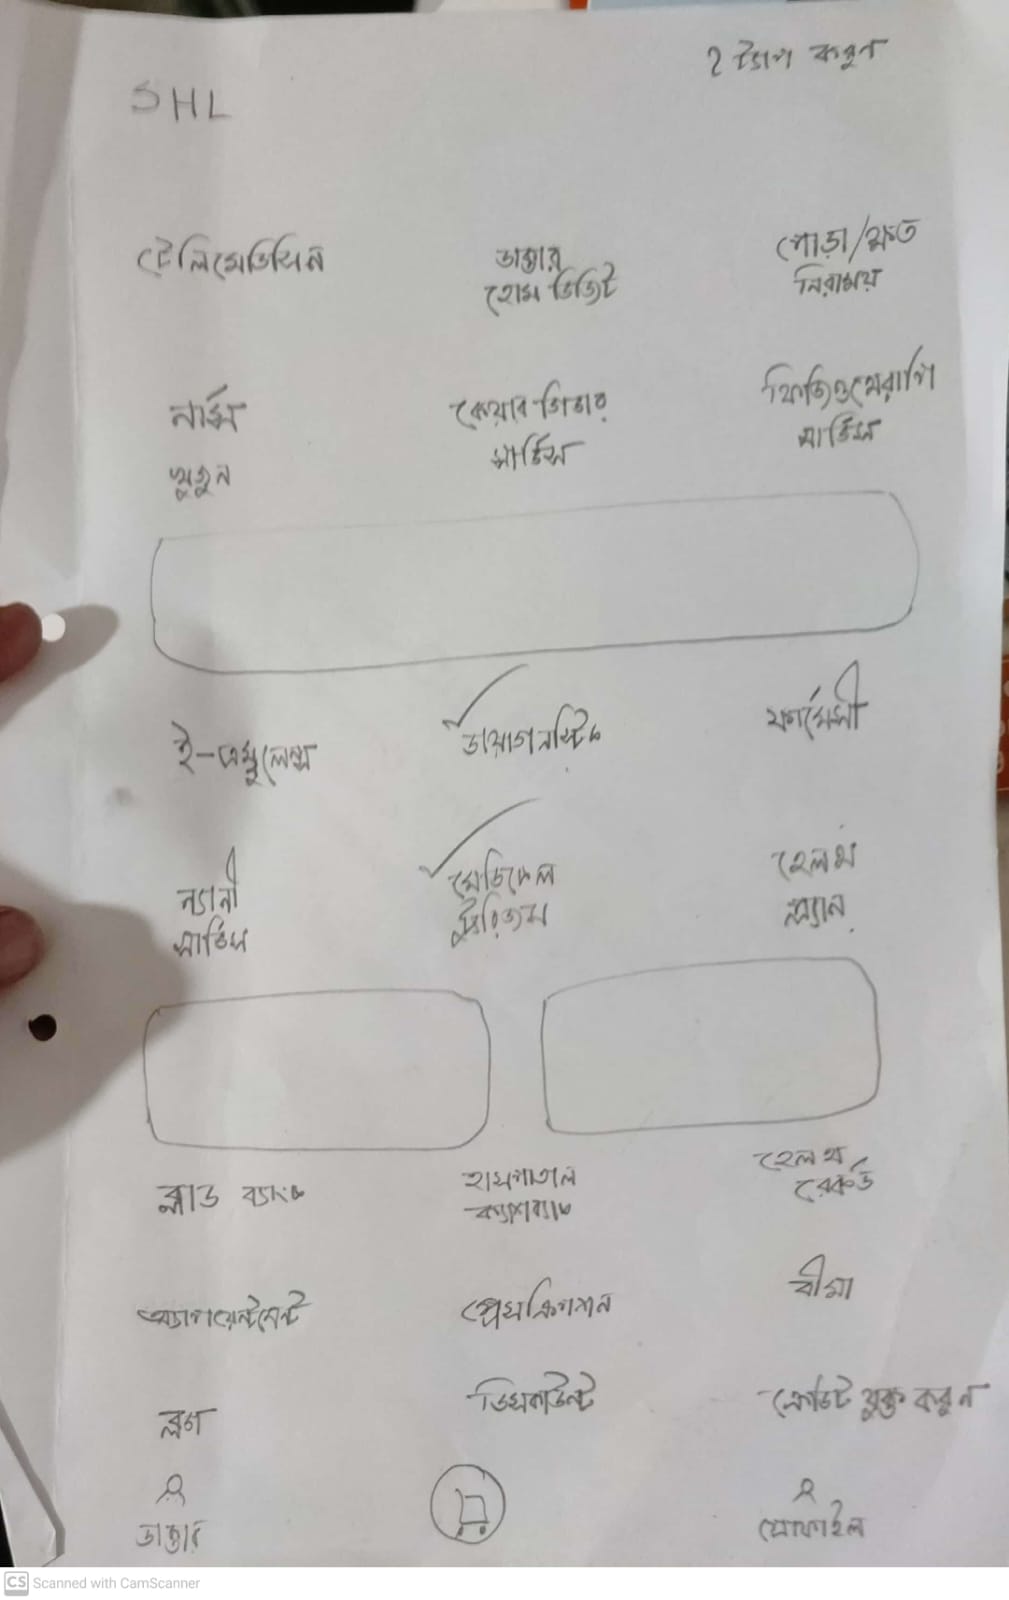 ২ ট্যাপ করুন
SHL
টেলিমেডিসিন
ডাক্তার
হোম ভিজিট
পোড়া/ক্ষত
নিরাময়
নার্স
খুজুন
কেয়ার গিভার
সার্ভিস
ফিজিওথেরাপি
সার্ভিস
ই-এম্বুলেন্স
ডায়াগনস্টিক
ফার্মেসী
ন্যানী
সার্ভিস
মেডিকেল
টুরিজম
হেলথ
প্ল্যান
ব্লাড ব্যাংক
হাসপাতাল
ক্যাশব্যাক
হেলথ
রেকর্ড
অ্যাপয়েন্টমেন্ট
প্রেসক্রিপশন
বীমা
ব্লগ
ডিসকাউন্ট
ক্রেডিট যুক্ত করুন
ডাক্তার
প্রোফাইল
CS Scanned with CamScanner